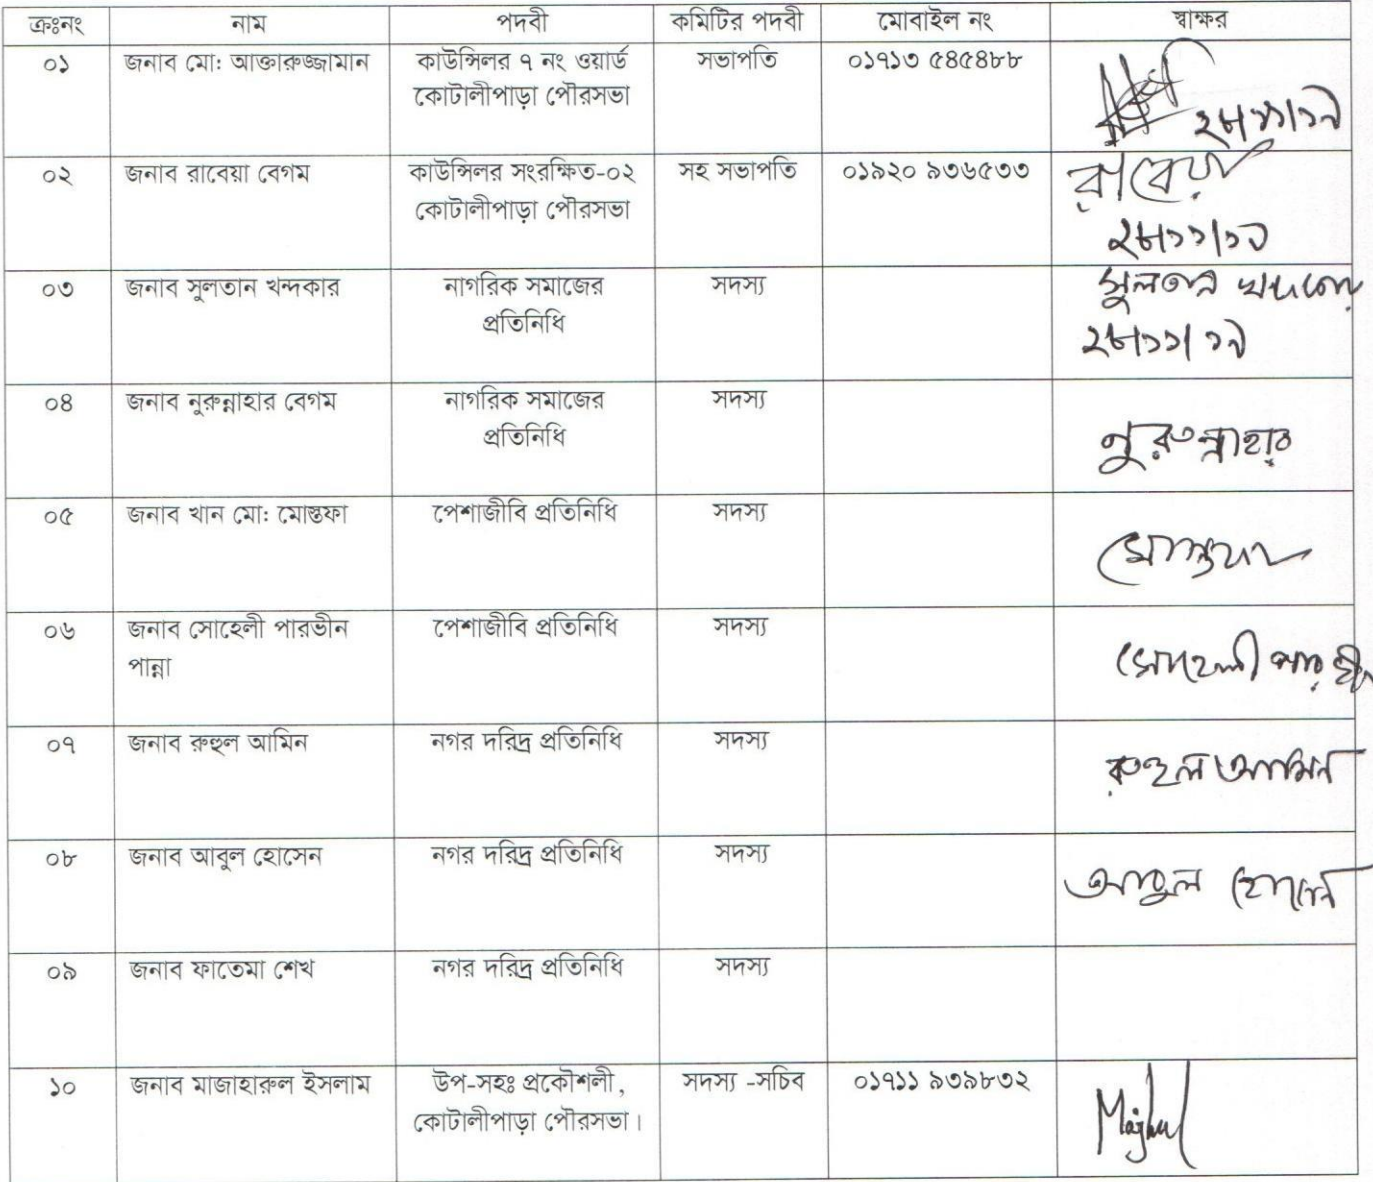 ক্রঃনং নাম পদবী কমিটির পদবী মোবাইল নং স্বাক্ষর
০১ জনাব মো: আক্তারুজ্জামান কাউন্সিলর ৭ নং ওয়ার্ড সভাপতি ০১৭১৩ ৫৪৫৪৮৮
কোটালীপাড়া পৌরসভা
২৮/১১/১৭
০২ জনাব রাবেয়া বেগম কাউন্সিলর সংরক্ষিত-০২ সহ সভাপতি ০১৯২০ ৯৩৬৫৩৩ রাবেয়া
কোটালীপাড়া পৌরসভা
২৮/১১/১৭
০৩ জনাব সুলতান খন্দকার নাগরিক সমাজের সদস্য সুলতান খন্দকার
প্রতিনিধি ২৮/১১/১৭
০৪ জনাব নুরুন্নাহার বেগম নাগরিক সমাজের সদস্য
প্রতিনিধি নুরুন্নাহার
০৫ জনাব খান মো: মোস্তফা পেশাজীবি প্রতিনিধি সদস্য
মোস্তফা
০৬ জনাব সোহেলী পারভীন পেশাজীবি প্রতিনিধি সদস্য
পান্না সোহেলী পারভীন
০৭ জনাব রুহুল আমিন নগর দরিদ্র প্রতিনিধি সদস্য
রুহুল আমিন
০৮ জনাব আবুল হোসেন নগর দরিদ্র প্রতিনিধি সদস্য
আবুল হোসেন
০৯ জনাব ফাতেমা শেখ নগর দরিদ্র প্রতিনিধি সদস্য
১০ জনাব মাজাহারুল ইসলাম উপ-সহঃ প্রকৌশলী, সদস্য -সচিব ০১৭১১ ৯৩৯৮৩২
কোটালীপাড়া পৌরসভা।